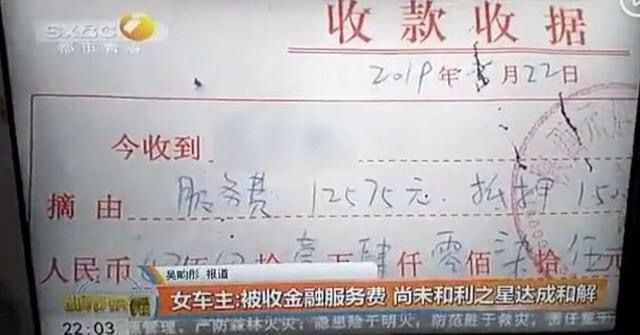 SXBC
都市青春
收款收据
2019年 月22日
今收到
摘由 服务费 12575元. 抵押 150
人民币 拾壹万肆仟零佰柒拾伍元
吴昀彤 报道
女车主:被收金融服务费 尚未和利之星达成和解
都市快报
22:03 管理，严防森林火灾；隐患险于明火，防范胜于救灾，责任重于